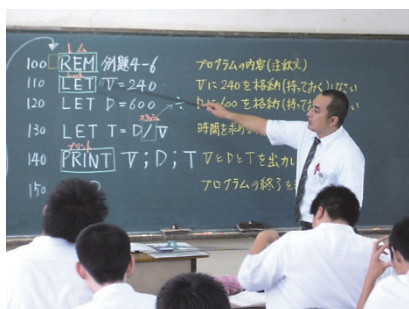 レム
100 REM 例題4-6 プログラムの内容(注釈文)
レット
110 LET V=240 Vに240を格納(持っておく)しなさい
120 LET D=600 ÷ Dに600を格納(持ってお
スラッシュ
130 LET T=D/V 時間を求め
プリント
140 PRINT V;D;T VとDとTを出力し
150 プログラムの終了を